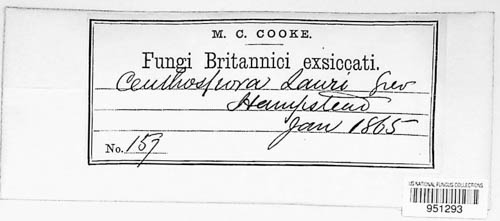 M. C. COOKE.
Fungi Britannici exsiccati.
Ceuthospora Lauri Grev
Hampstead
Jan 1865
No. 157
US NATIONAL FUNGUS COLLECTIONS
951293